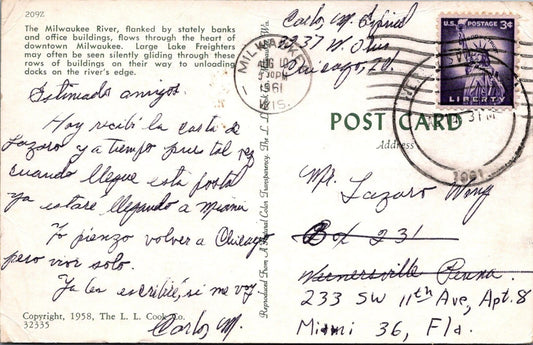 209Z
The Milwaukee River, flanked by stately banks
and office buildings, flows through the heart of
downtown Milwaukee. Large Lake Freighters
may often be seen silently gliding through these
rows of buildings on their way to unloading
docks on the river's edge.
Estimados amigos.
Hoy recibí la carta de
Lazaro y a tiempo pues tal vez
cuando llegue esta postal
ya estaré llegando a Miami
Yo pienzo volver a Chicago
pero vor solo.
Ya les escribiré, si me voy
Carlos M.
Copyright, 1958, The L. L. Cook Co.
32335
Reproduced From A Natural Color Transparency. The L. L.
Carlos M.
3237 W.
Chicago, Ill.
MILWAUKEE
AUG 10
PM
1961
WIS.
U.S. POSTAGE 3¢
LIBERTY
PM
1961
POST CARD
Address
Mr. Lazaro Wong
Box 231
Wernersville Penna.
233 SW 11th Ave, Apt. 8
Miami 36, Fla.